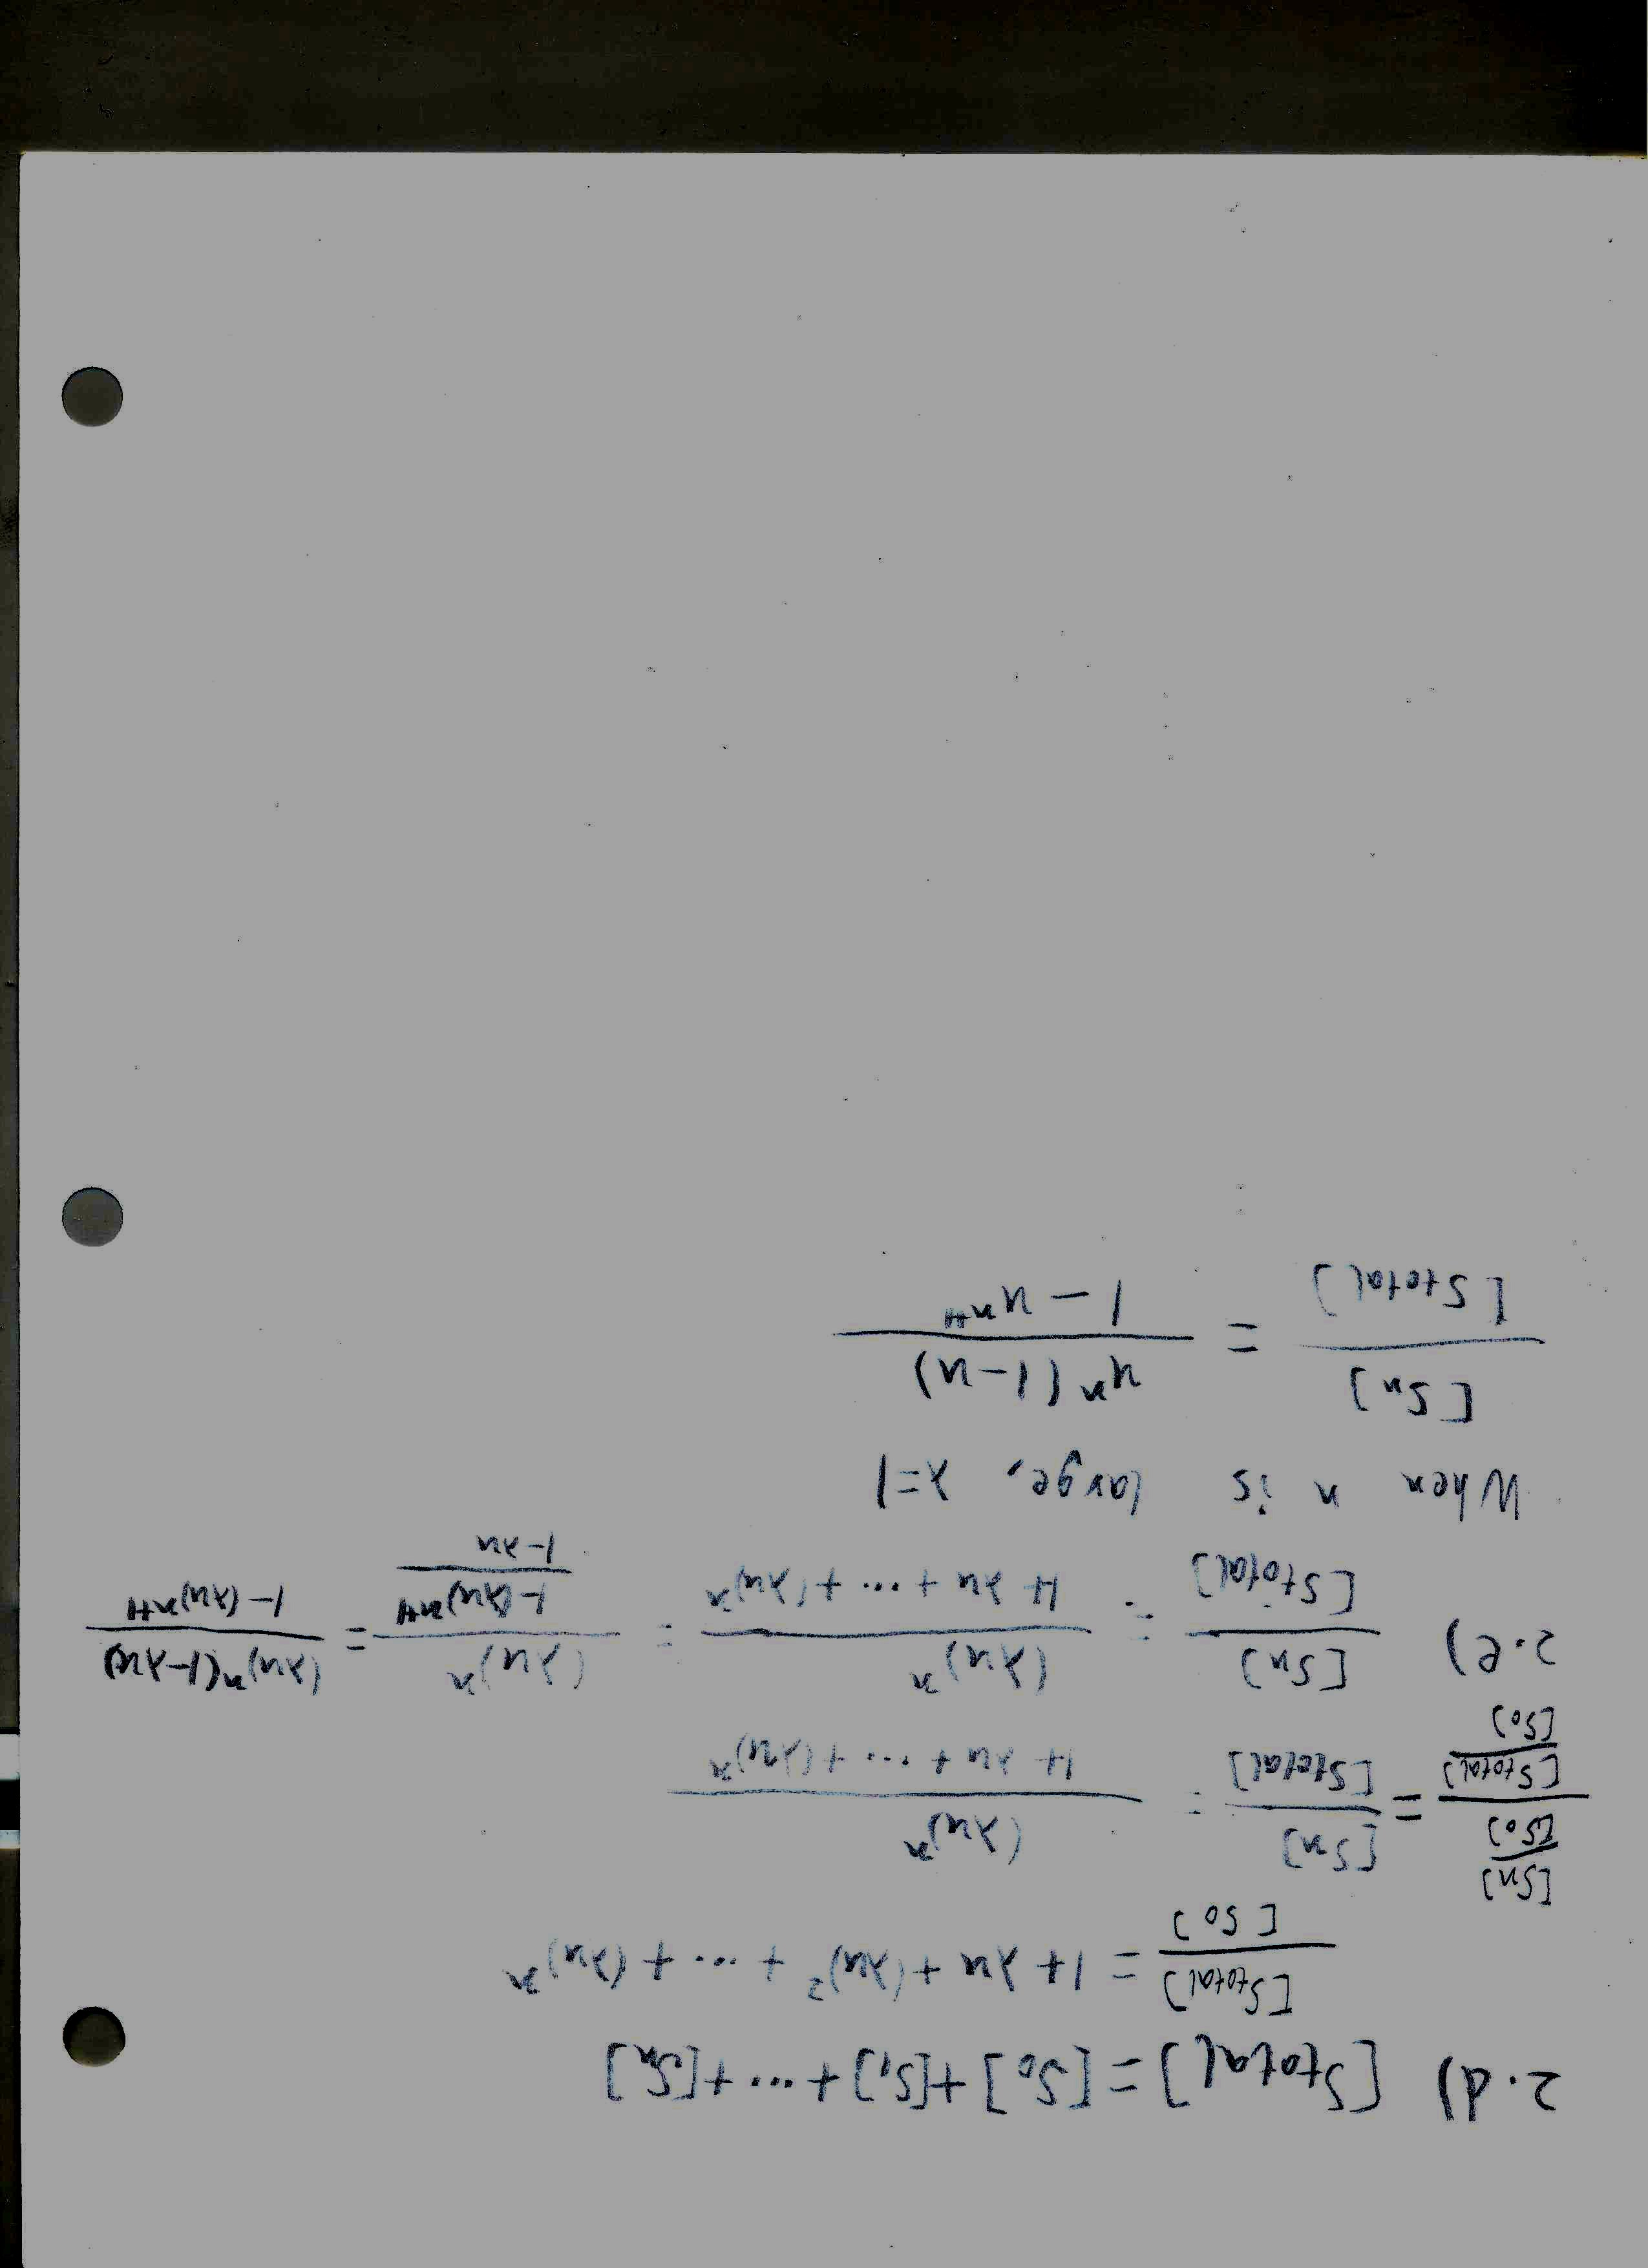 2.d) [Stotal] = [S₀] + [S₁] + ... + [Sₙ]
[Stotal]/[S₀] = 1 + λu + (λu)² + ... + (λu)ⁿ
([Sₙ]/[S₀])/([Stotal]/[S₀]) = [Sₙ]/[Stotal] = (λu)ⁿ/(1 + λu + ... + (λu)ⁿ)
2.e) [Sₙ]/[Stotal] = (λu)ⁿ/(1 + λu + ... + (λu)ⁿ) = (λu)ⁿ/((1-(λu)ⁿ⁺¹)/(1-λu)) = (λu)ⁿ(1-λu)/(1-(λu)ⁿ⁺¹)
When n is large, λ=1
[Sₙ]/[Stotal] = uⁿ(1-u)/(1-uⁿ⁺¹)